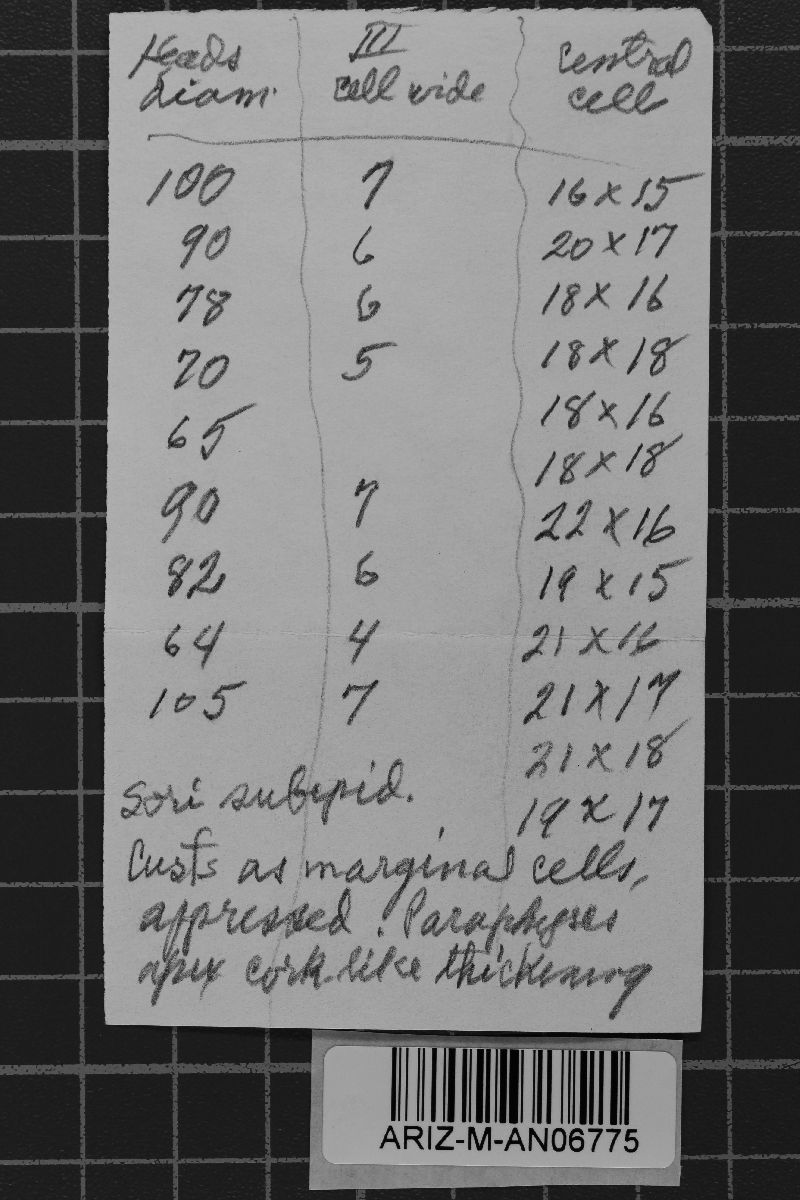 Heads III Central
diam. cell wide cell
100 7 16 x 15
90 6 20 x 17
78 6 18 x 16
70 5 18 x 18
65 18 x 16
90 7 18 x 18
82 6 22 x 16
64 4 19 x 15
105 7 21 x 16
21 x 17
21 x 18
19 x 17
Sori subepid.
Custs as marginal cells,
appressed. Paraphyses
apex cork like thickening
ARIZ-M-AN06775